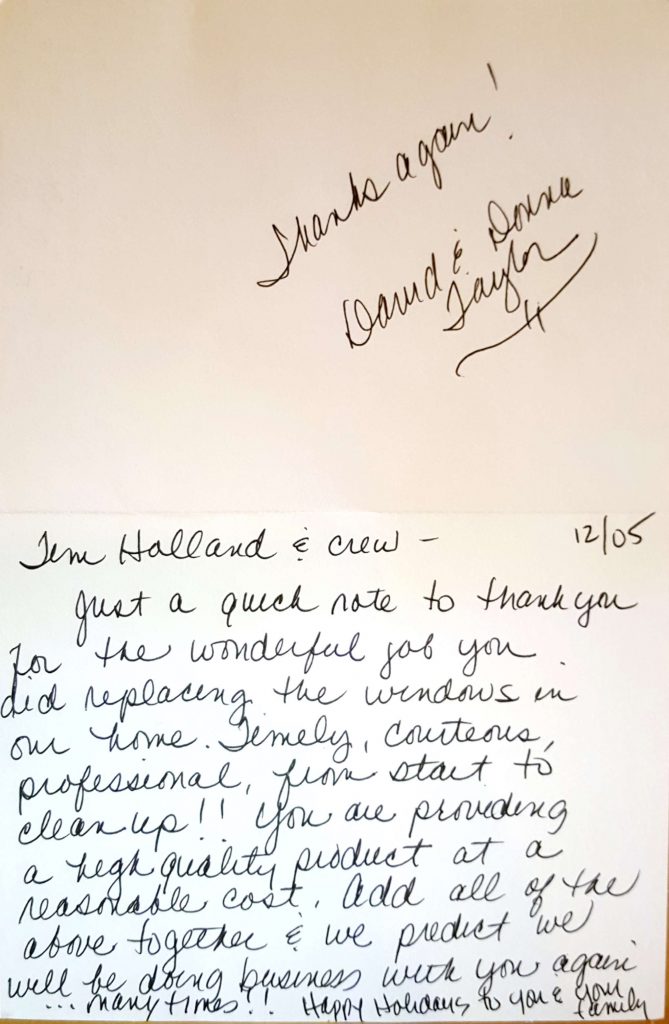 Thanks again!
David & Donna
Taylor
12/05
Tim Holland & crew -
Just a quick note to thank you
for the wonderful job you
did replacing the windows in
our home. Timely, courteous,
professional, from start to
clean up!! You are providing
a high quality product at a
reasonable cost. Add all of the
above together & we predict we
will be doing business with you again
... many times!! Happy Holidays to you & your
family